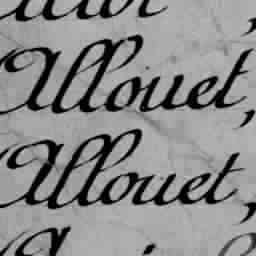 Allouet,
Allouet,